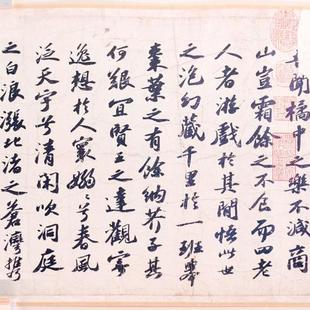 聞橘中之樂不減商
山豈霜餘之不食而四老
人者游戲於其間悟此世
之泡幻藏千里於一班舉
棗葉之有餘納芥子其
何艱宜賢王之達觀寄
逸想於人寰嫋々兮春風
泛天宇兮清閑吹洞庭
之白浪漲北渚之蒼灣攜